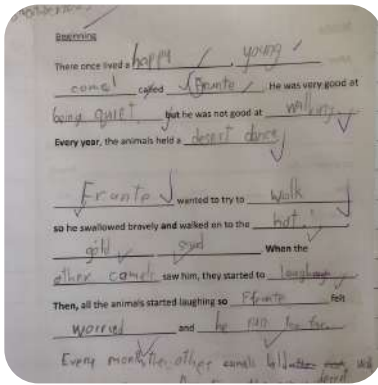 Beginning
There once lived a happy, young
camel called Frunto. He was very good at
being quiet but he was not good at walking.
Every year, the animals held a desert dance
Frunto wanted to try to walk
so he swallowed bravely and walked on to the hot
gold sand. When the
other camels saw him, they started to laughing
Then, all the animals started laughing so Frunto felt
worried and he ran too far.
Every month the other camels held